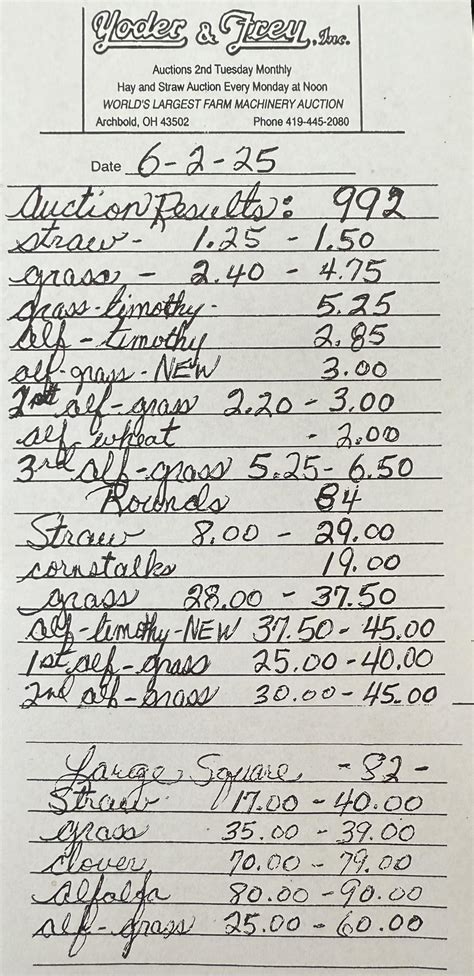 Yoder & Frey, Inc.
Auctions 2nd Tuesday Monthly
Hay and Straw Auction Every Monday at Noon
WORLD'S LARGEST FARM MACHINERY AUCTION
Archbold, OH 43502 Phone 419-445-2080
Date 6-2-25
Auction Results: 992
straw - 1.25 - 1.50
grass - 2.40 - 4.75
grass-timothy - 5.25
alf - timothy 2.85
alf-grass - NEW 3.00
alf-grass 2.20 - 3.00
alf-wheat - 2.00
3rd alf-grass 5.25 - 6.50
Rounds 84
Straw 8.00 - 29.00
cornstalks 19.00
grass 28.00 - 37.50
alf-timothy-NEW 37.50 - 45.00
1st alf-grass 25.00 - 40.00
2nd alf-grass 30.00 - 45.00
Large Square - 82 -
Straw 17.00 - 40.00
grass 35.00 - 39.00
clover 70.00 - 79.00
Alfalfa 80.00 - 90.00
alf-grass 25.00 - 60.00